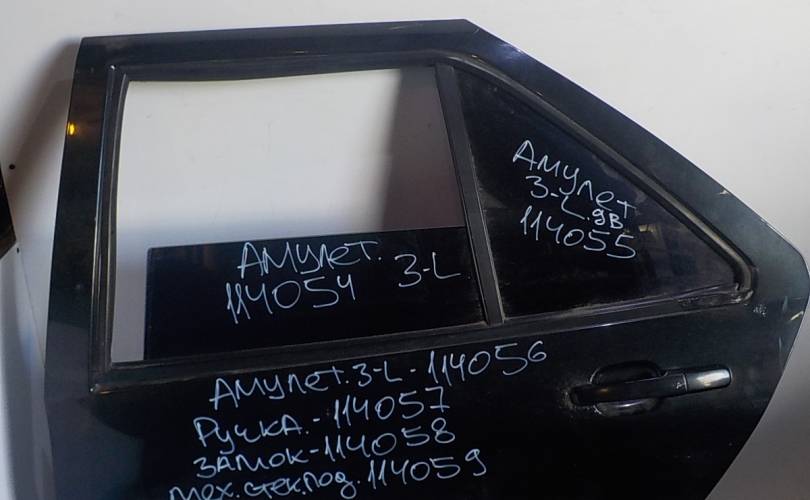 Амулет.
114054 3-L
Амулет
3-L.дв
114055
Амулет.3-L-114056
Ручка.-114057
Замок-114058
Мех.стек.под.114059